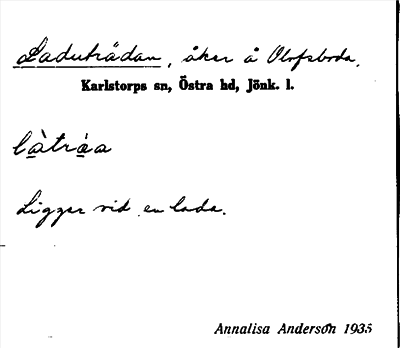 Laduträdan, åker å Olofsboda.
Karlstorps sn, Östra hd, Jönk. l.
làtrá̱a
Ligger vid en lada.
Annalisa Anderson 1935